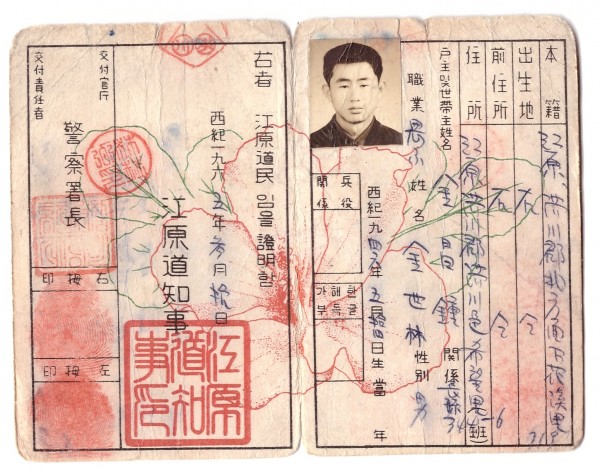 本籍 江原 洪川郡 北方面 下花溪里
出生地 右 仝
前住所 右 仝
住所 江原 洪川郡 洪川邑 希望里 (班) 6
戶主및世帶主姓名 金昌鍾 關係
職業 姓名 金世林 性別 男
西紀一九四 年五月拾四日生 當 年
兵役關係
한글해득가부
右者 江原道民임을證明함
西紀一九六五年參月拾日
江原道知事
江原道知事印
交付官庁 警察署長
交付責任者
右拇印
左拇印